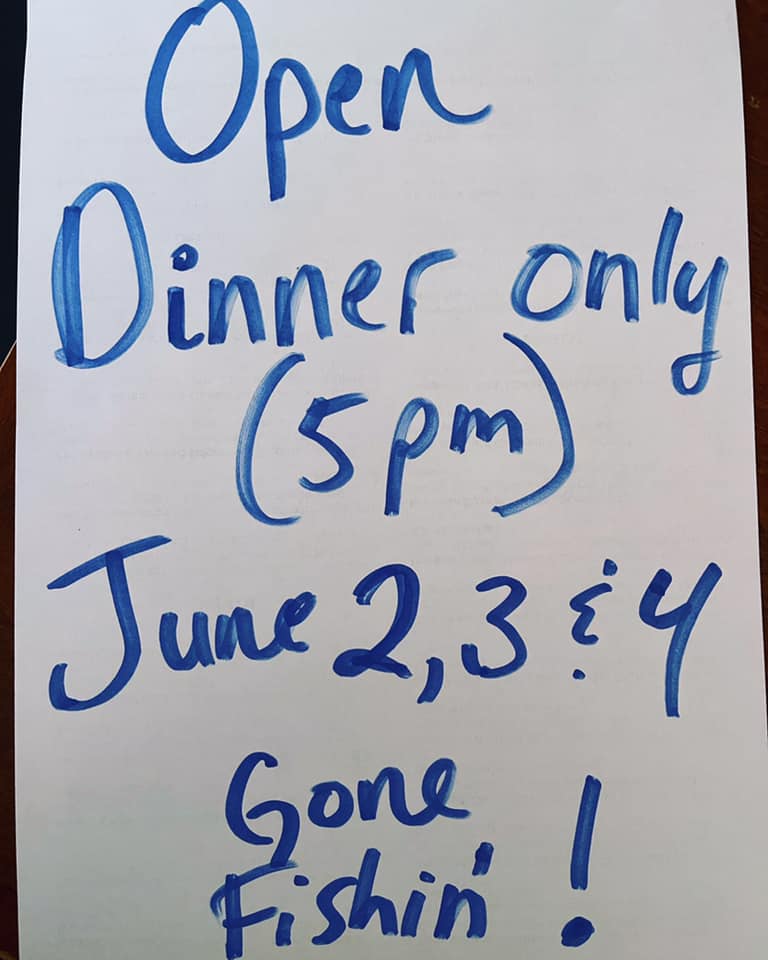 Open
Dinner only
(5pm)
June 2,3 & 4
Gone
Fishin' !